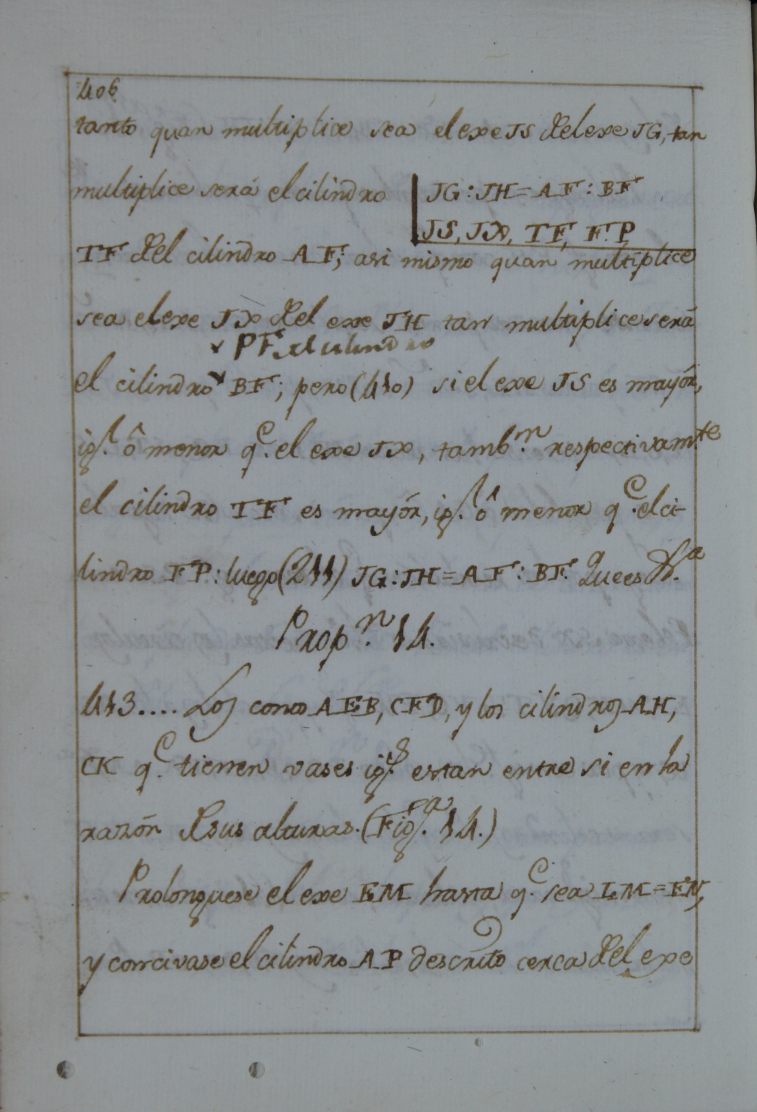 406
tanto quan multiplice sea el exe JS del exe JG, tan
multiplice será el cilindro
JG : JH = AF : BF
JS, JX, TF, FP
TF del cilindro AF; asi mismo quan multiplice
sea el exe JX del exe JH tan multiplice será
PF del cilindro
el cilindro BF; pero (410) si el exe JS es mayór,
igs. ô menor q.e el exe JX, tamb.n respectivam.te
el cilindro TF es mayór, igs. ô menor q.e el ci-
lindro FP: luego (211) JG : JH = AF : BF. Que es D.a
Prop.n 14.
413.... Los conos AEB, CFD, y los cilindros AH,
CK q.e tienen vases igs. estan entre si en la
razón de sus alturas. (Fig.ra 14.)
Prolonguese el exe EM hasta q.e sea LM = FN,
y concivase el cilindro AP descrito cerca del exe